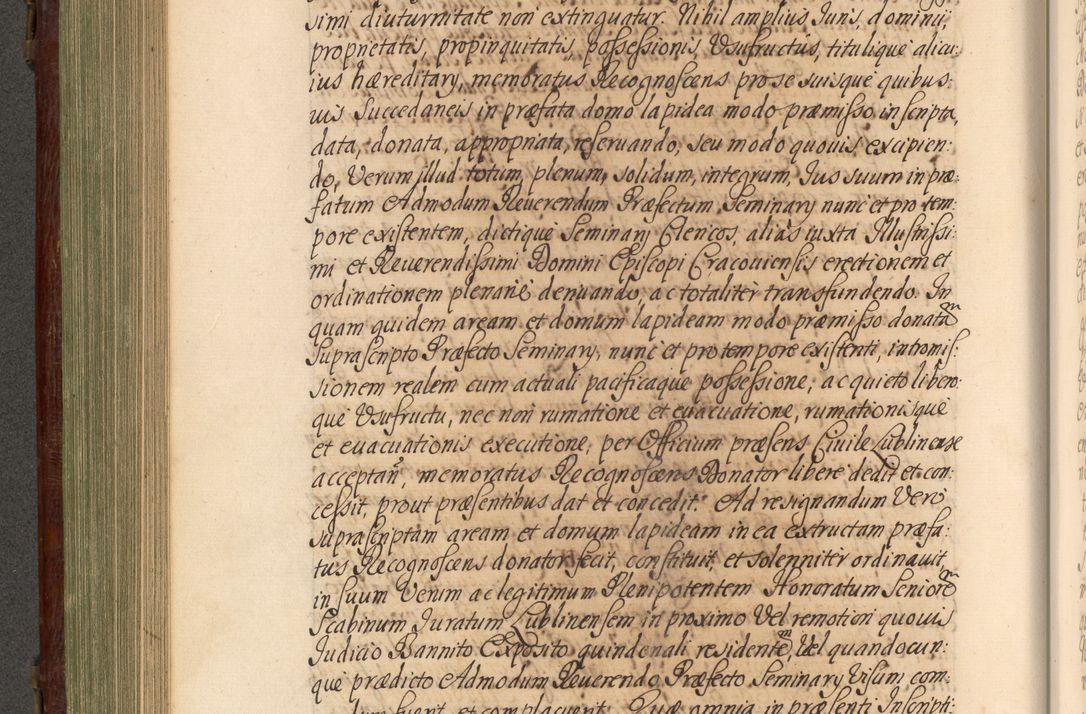 simi diuturnitate non extinguatur. Nihil amplius Juris, dominij,
proprietatis, propinquitatis, possessionis Vsufructus, titulique alicu:
ius hæreditarij, memoratus Recognoscens pro se suisque quibus:
uis Succedaneis in præfata domo lapidea modo præmisso inscripta,
data, donata, appropriata, reseruando, seu modo quouis excipien:
do, Verum illud totum, plenum, solidum, integrum, Jus suum in præ:
fatum Admodum Reuerendum Præfectum Seminarij nunc et pro tem:
pore existentem, dictique Seminarij Clericos, alias iuxta Illustrissi:
mi et Reuerendissimi Domini Episcopi Cracouiensis erectionem et
ordinationem plenariè deriuando, ac totaliter transfundendo. In
quam quidem aream et domum lapideam modo præmisso donatam
suprascripto Præfecto Seminarij, nunc et pro tempore existenti, intromis:
sionem realem cum actuali pacificaque possessione, ac quieto libero:
que Vsufructu, nec non rumatione et euacuatione, rumationisque
et euacuationis executione, per Officium præsens Ciuile Lublinense
acceptan̄, memoratus Recognoscens Donator libere dedit et con:
cessit, prout præsentibus dat et concedit. Ad resignandum Verò
suprascriptam aream et domum lapideam in ea extructam præfa:
tus Recognoscens donator fecit, constituit, et solenniter ordinauit,
in suum Verum ac legitimum Plenipotentem Honoratum Seniorem
Scabinum Juratum Lublinensem in proximo Vel remotiori quouis
Judicio Bannito Exposito quindenali residentem, Vel quandocun:
que prædicto Admodum Reuerendo Præfecto Seminarij Visum com:
dum fuerit et complacuerit. Quæ omnia in præsenti Inscripti: